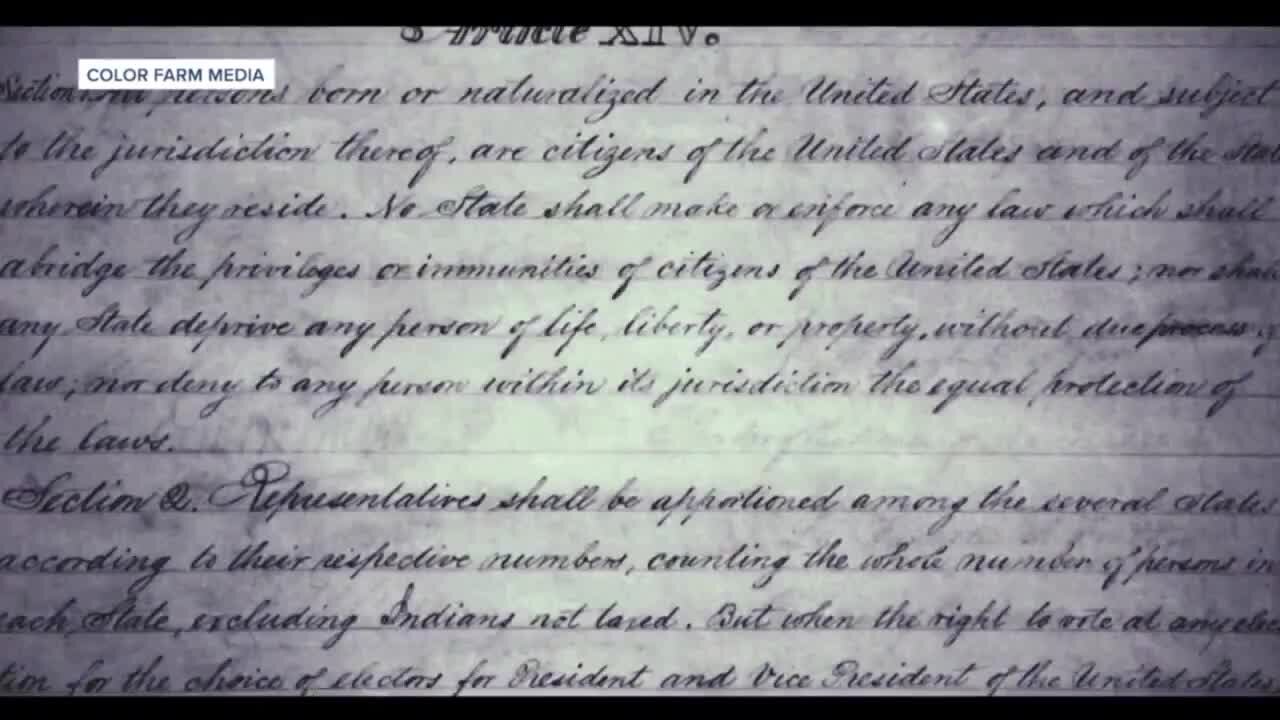 Article XIV.
COLOR FARM MEDIA
Section persons born or naturalized in the United States, and subject
to the jurisdiction thereof, are citizens of the United States and of the
wherein they reside. No State shall make or enforce any law which shall
abridge the privileges or immunities of citizens of the United States; nor shall
any State deprive any person of life, liberty, or property, without due process
law; nor deny to any person within its jurisdiction the equal protection of
the laws.
Section 2. Representatives shall be apportioned among the several States
according to their respective numbers, counting the whole number of persons in
each State, excluding Indians not taxed. But when the right to vote at any elec
tion for the choice of electors for President and Vice President of the United States